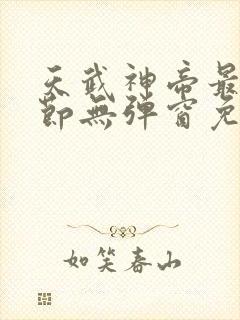 天武神帝最
節無彈窗免
如笑春山